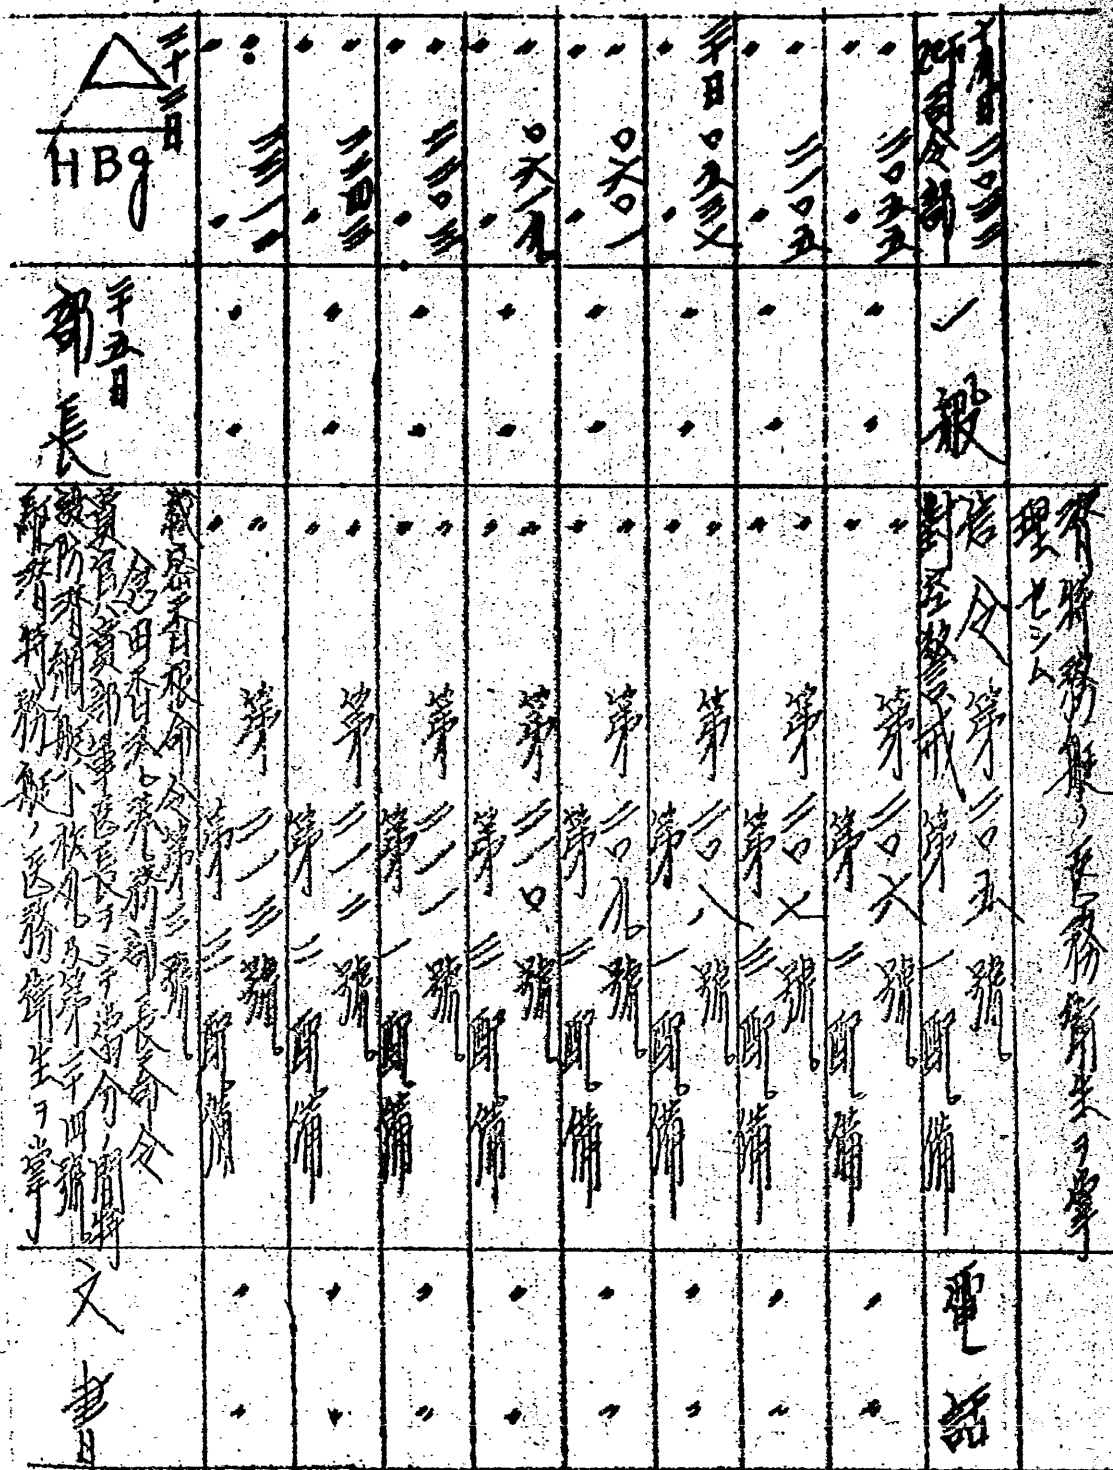 潜特務艇ノ医務衛生ヲ掌
理セシム
師司令部
一般
信令第二〇五號
對空警戒第一配備
電話
〃 〃 二〇五五 〃 〃 〃 〃 〃 第二〇六號
第二配備 〃 〃
〃 〃 二一〇五 〃 〃 〃 〃 〃 第二〇七號
第三配備 〃 〃
二十日 〇五三七 〃 〃 〃 〃 〃 第二〇八號
第一配備 〃 〃
〃 〃 〇六〇一 〃 〃 〃 〃 〃 第二〇九號
第二配備 〃 〃
〃 〃 〇六一九 〃 〃 〃 〃 〃 第二一〇號
第三配備 〃 〃
〃 〃 二二〇三 〃 〃 〃 〃 〃 第二一一號
第一配備 〃 〃
〃 〃 二二四三 〃 〃 〃 〃 〃 第二一二號
第二配備 〃 〃
〃 〃 二三一一 〃 〃 〃 〃 〃 第二一三號
第三配備 〃 〃
二十二日
HBg
二十五日
部長
命令第三號
部長命令
軍医長ヲシテ當分ノ間特
設防潜網艇小秋丸及第二十四號
駆潜特務艇ノ医務衛生ヲ掌
文書